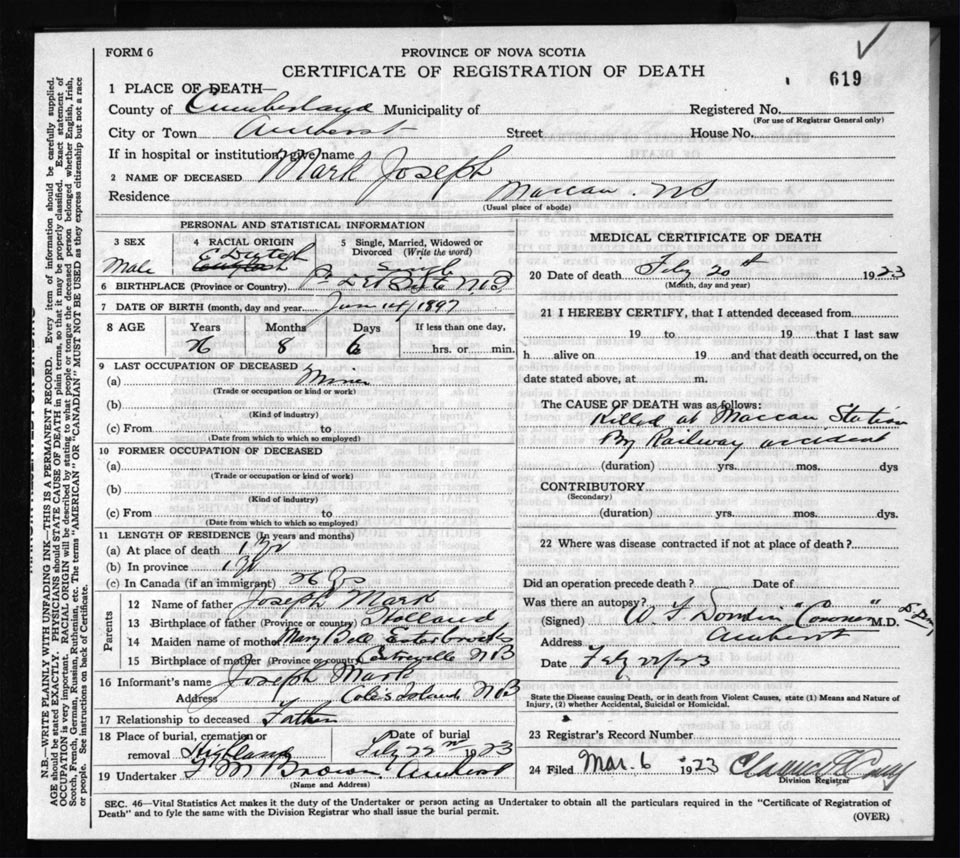 FORM 6
PROVINCE OF NOVA SCOTIA
CERTIFICATE OF REGISTRATION OF DEATH
619
1 PLACE OF DEATH—
County of Cumberland Municipality of Registered No.
(For use of Registrar General only)
City or Town Amherst Street House No.
If in hospital or institution, give name
2 NAME OF DECEASED Mark Joseph
Residence Maccan N.S
(Usual place of abode)
PERSONAL AND STATISTICAL INFORMATION
3 SEX
Male
4 RACIAL ORIGIN
Dutch
5 Single, Married, Widowed or Divorced (Write the word)
Single
6 BIRTHPLACE (Province or Country) N.B
7 DATE OF BIRTH (month, day and year) June 14/1897
8 AGE Years Months Days If less than one day,
8 6 hrs. or min.
9 LAST OCCUPATION OF DECEASED
(a) Miner
(Trade or occupation or kind or work)
(b)
(Kind of industry)
(c) From to
(Date from which to which so employed)
10 FORMER OCCUPATION OF DECEASED
(a)
(Trade or occupation or kind of work)
(b)
(Kind of industry)
(c) From to
(Date from which to which so employed)
11 LENGTH OF RESIDENCE (In years and months)
(a) At place of death 1 yr
(b) In province 1 yr
(c) In Canada (if an immigrant) 26 yrs
Parents
12 Name of father Joseph Mark
13 Birthplace of father (Province or country) Holland
14 Maiden name of mother Mary Bell
15 Birthplace of mother (Province or country) Centreville N.B
16 Informant's name Joseph Mark
Address Cole's Island N.B
17 Relationship to deceased Father
18 Place of burial, cremation or removal Highland
Date of burial
Feby 22nd 1923
19 Undertaker Brown Amherst
(Name and Address)
MEDICAL CERTIFICATE OF DEATH
20 Date of death Feby 20th 1923
(Month, day and year)
21 I HEREBY CERTIFY, that I attended deceased from
19 to 19 that I last saw
h alive on 19 and that death occurred, on the
date stated above, at m.
The CAUSE OF DEATH was as follows:
Killed at Maccan Station
By Railway accident
(duration) yrs. mos. dys
CONTRIBUTORY
(Secondary)
(duration) yrs. mos. dys.
22 Where was disease contracted if not at place of death?
Did an operation precede death? Date of
Was there an autopsy?
(Signed) "Coroner" M.D.
Address Amherst
Date Feby 22/23
State the Disease causing Death, or in death from Violent Causes, state (1) Means and Nature of
Injury, (2) whether Accidental, Suicidal or Homicidal.
23 Registrar's Record Number
24 Filed Mar. 6 1923
Division Registrar
SEC. 46—Vital Statistics Act makes it the duty of the Undertaker or person acting as Undertaker to obtain all the particulars required in the "Certificate of Registration of
Death" and to fyle the same with the Division Registrar who shall issue the burial permit.
(OVER)
N.B.—WRITE PLAINLY WITH UNFADING INK—THIS IS A PERMANENT RECORD. Every item of information should be carefully supplied.
AGE should be stated EXACTLY. PHYSICIANS should STATE CAUSE OF DEATH in plain terms, so that it may be properly classified. Exact statement of
OCCUPATION is very important. RACIAL ORIGIN will be described by stating to what people or tongue the deceased person belonged whether English, Irish,
Scotch, French, German, Russian, Ruthenian, etc. The terms "AMERICAN" OR "CANADIAN" MUST NOT BE USED as they express citizenship but not a race
or people. See instructions on back of Certificate.